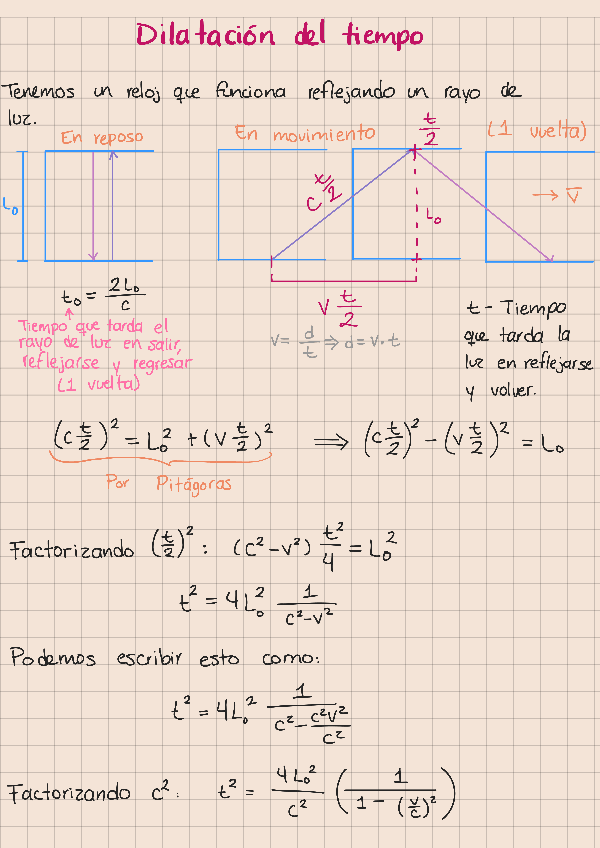 Dilatación del tiempo
Tenemos un reloj que funciona reflejando un rayo de
luz.
En reposo
En movimiento
t/2
(1 vuelta)
L₀
c t/2
L₀
→ V̅
t₀ = 2L₀/c
v t/2
Tiempo que tarda el
rayo de luz en salir,
reflejarse y regresar
(1 vuelta)
v = d/t ⇒ d = v·t
t - Tiempo
que tarda la
luz en reflejarse
y volver.
(c t/2)² = L₀² + (v t/2)² ⟹ (c t/2)² - (v t/2)² = L₀
Por Pitágoras
Factorizando (t/2)²: (c² - v²) t²/4 = L₀²
t² = 4L₀² 1/(c² - v²)
Podemos escribir esto como:
t² = 4L₀² 1/(c² - c²v²/c²)
Factorizando c²: t² = 4L₀²/c² (1/(1 - (v/c)²))